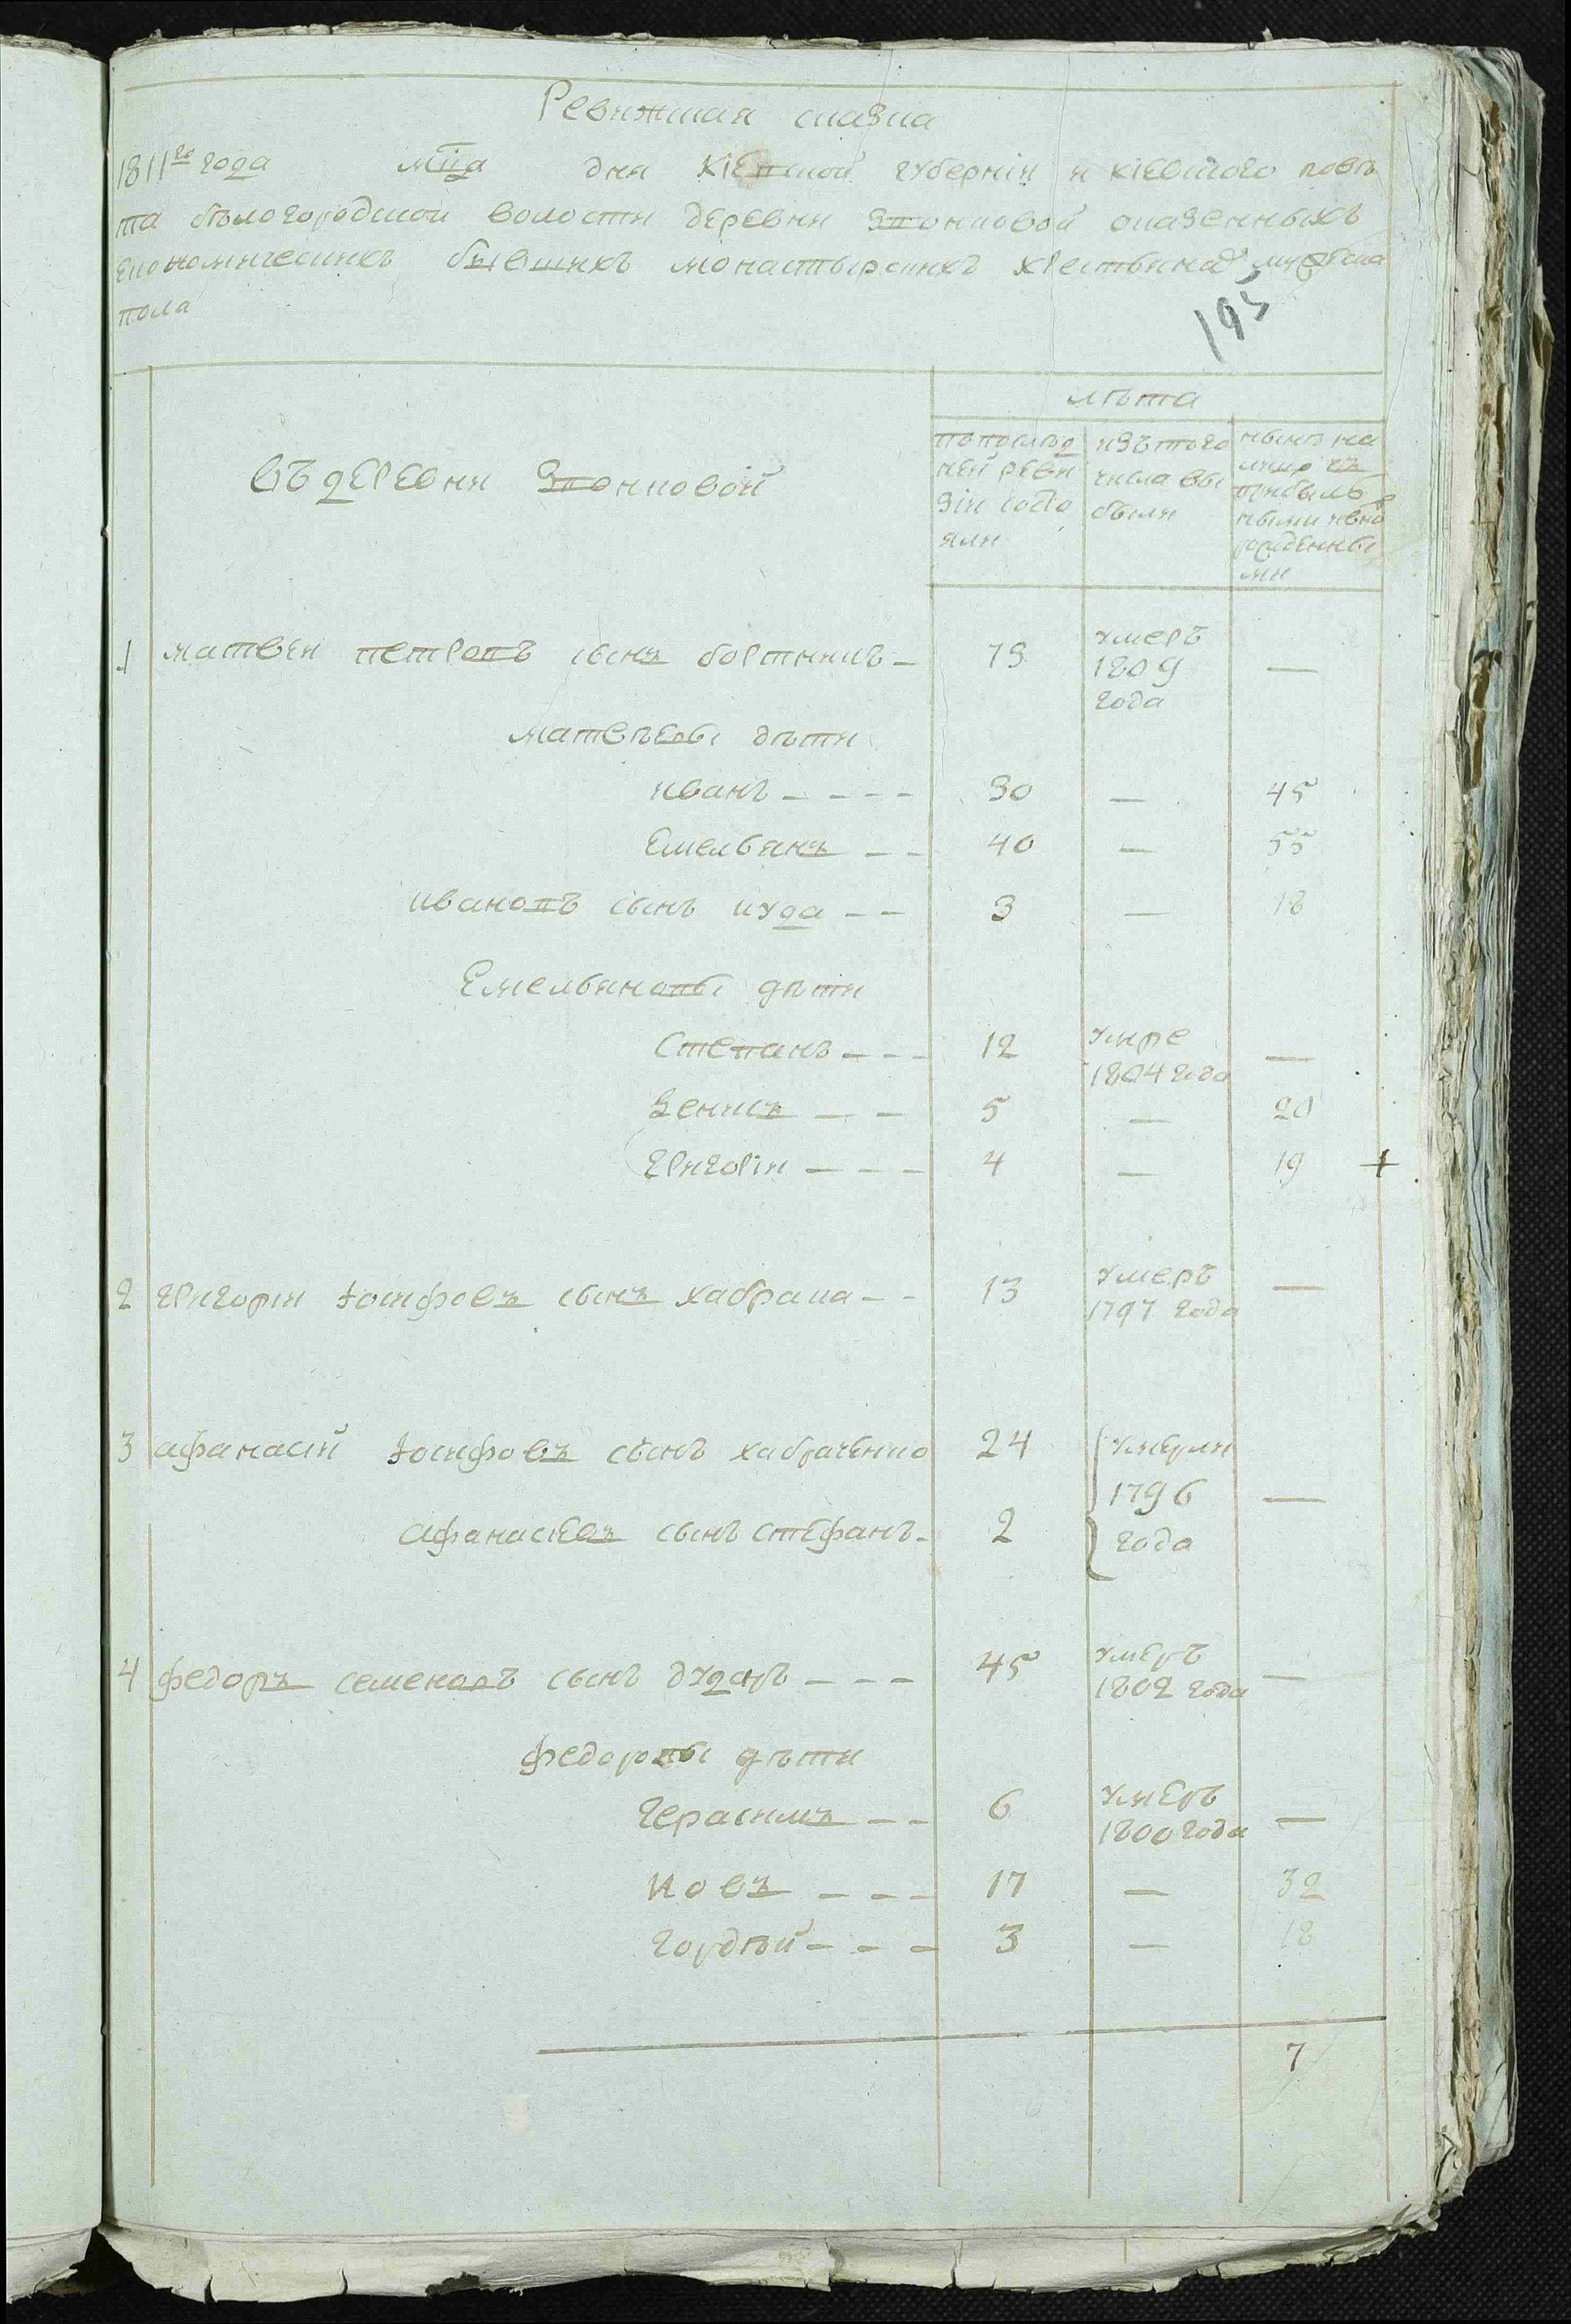 Ревижшая сказка
1811го года мⷭца дня Кіевской губерніи и кіевского повѣ
та бѣлогородской волости деревни Звонковой оказенныхъ
економическихъ бывшихъ монастырскихъ хрестьянъ мужеска
пола
195
лѣта
Въ деревни Звонковой
попослѣд
ней реви
зіи состо
яли
изъ того
числа вы
были
нынѣ на
лицо съ
прибыль
ными и вно
рожденны
ми
1 матвѣи петровъ сынъ бортникъ 79 умеръ
1809
года —
матвѣевы дѣти
иванъ 30 — 45
Емельянъ 40 — 55
ивановъ сынъ иуда 3 — 18
Емельяновы дѣти
Степанъ 12 умре
1804 года —
Зенецъ 5 — 20
григоріи 4 — 19 +
2 григории Іосифовъ сынъ хабрака 13 умеръ
1797 года —
3 афанасій Іосифовъ сынъ хабраченко 24 умерли
1796 —
афанасіевъ сынъ стефанъ 2 года
4 федоръ семеновъ сынъ дударь 45 умеръ
1802 года —
федоровы дѣти
герасимъ 6 умеръ
1800 года —
Иовъ 17 — 32
гордѣй 3 — 18
7